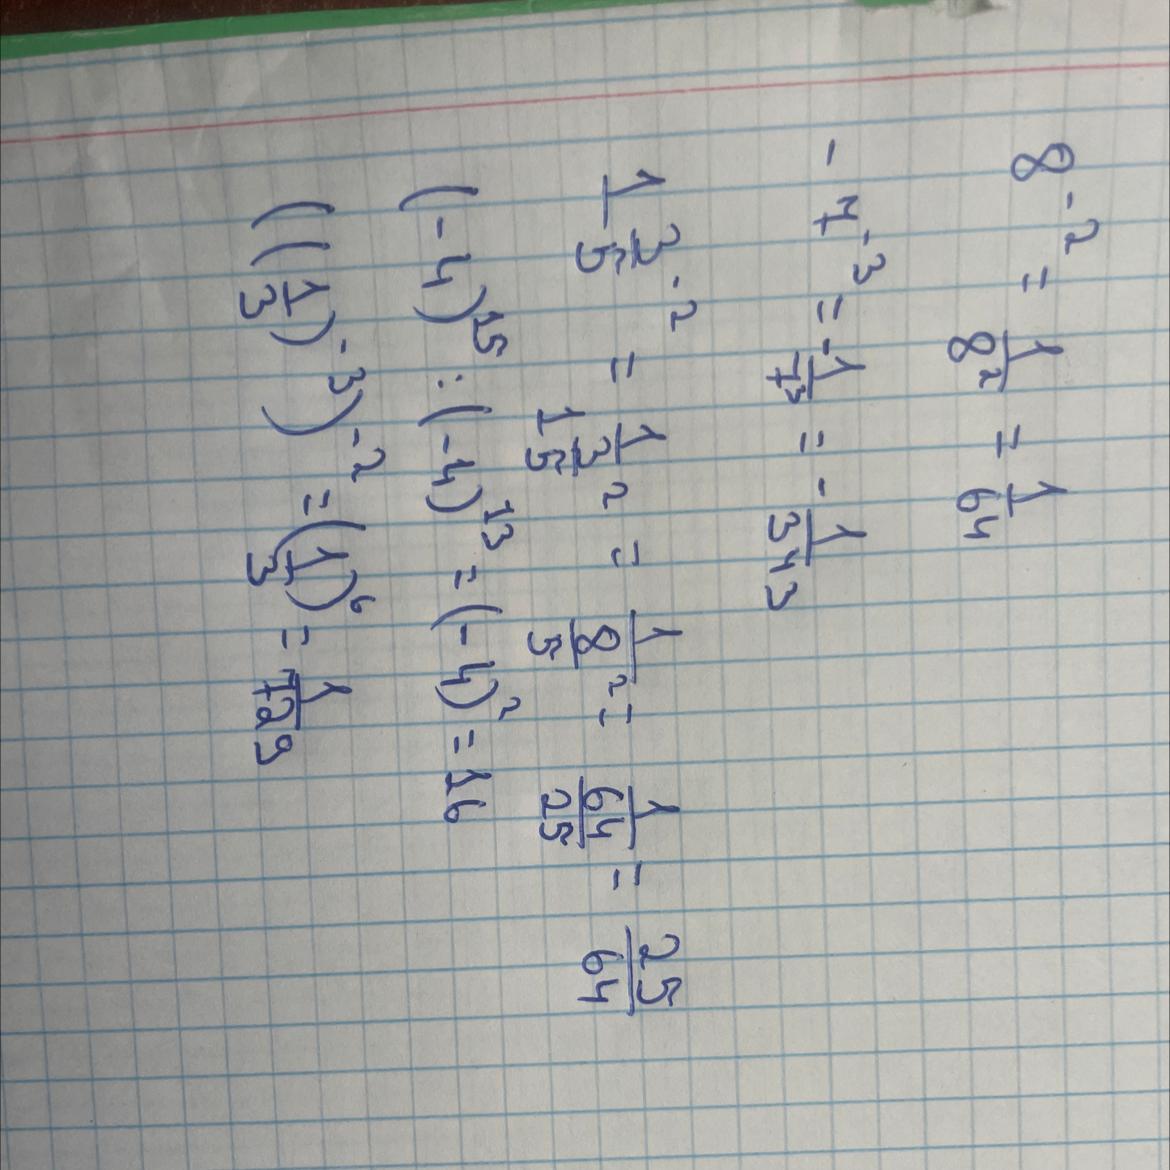 8⁻² = 1/8² = 1/64
-7⁻³ = -1/7³ = -1/343
1 3/5⁻² = 1/(1 3/5²) = 1/(8/5²) = 1/(64/25) = 25/64
(-4)¹⁵ : (-4)¹³ = (-4)² = 16
((1/3)⁻³)⁻² = (1/3)⁶ = 1/729